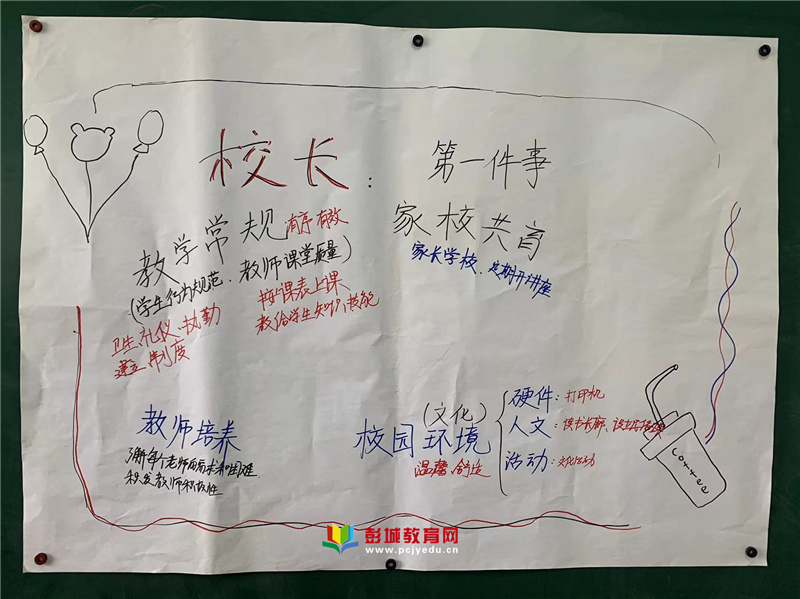 校长：
第一件事
教学常规 有序有效
(学生行为规范、教师课堂质量)
卫生、礼仪、执勤
建立制度
按课表上课
教给学生知识、技能
家校共育
家长学校、定期开讲座
教师培养
了解每个老师
积极性
校园环境(文化)
温馨、舒适
硬件：打印机
人文：读书长廊、
活动：文化活动
coffee
彭城教育网
www.pcjyedu.cn